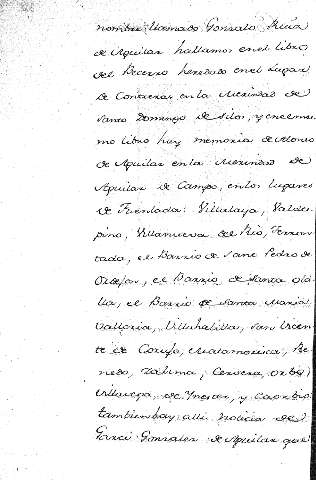 nombre llamado Gonzalo Ruiz
de Aguilar hallamos en el libro
del Becerro heredado en el Lugar
de Contreras en la Merindad de
Santo Domingo de Silos, y en el mis
mo libro hay memoria de Alonso
de Aguilar en la Merindad de
Aguilar de Campo, en los lugares
de Frenlada: Villalaya, Valdes
pino, Villanueva del Rio,
tada, el Barrio de Sant Pedro de
el Barrio de Santa ola
lla, el Barrio de Santa Maria
Valloria, Villuhalilla, San Vicen
te de Matamorisca, Re
nedo, Cervera, Orbo
Villavega, de y
tambien hay alli noticia de
Garci Gonzalez de Aguilar que